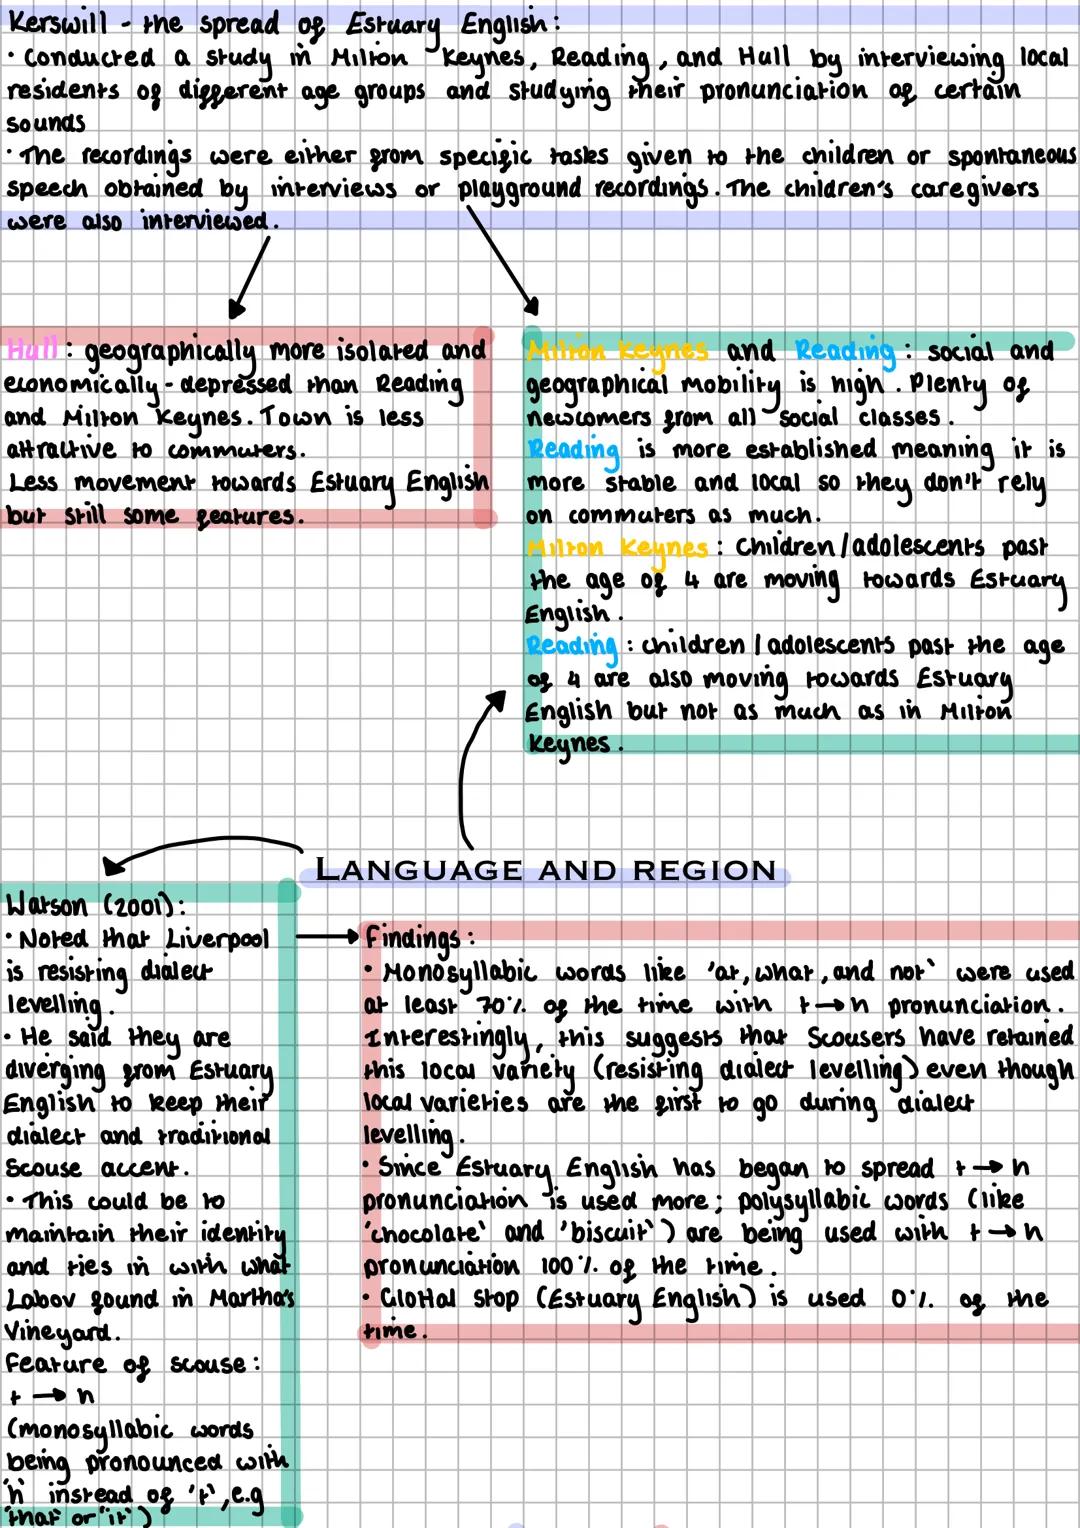 Kerswill - the spread of Estuary English:
· Conducted a study in Milton Keynes, Reading, and Hull by interviewing local
residents of different age groups and studying their pronunciation of certain
sounds
· The recordings were either from specific tasks given to the children or spontaneous
speech obtained by interviews or playground recordings. The children's caregivers
were also interviewed.
Hull: geographically more isolated and
economically-depressed than Reading
and Milton Keynes. Town is less
attractive to commuters.
Less movement towards Estuary English
but still some features.
Milton Keynes and Reading: social and
geographical mobility is high. Plenty of
newcomers from all social classes.
Reading is more established meaning it is
more stable and local so they don't rely
on commuters as much.
Milton Keynes: Children/adolescents past
the age of 4 are moving towards Estuary
English.
Reading: children/adolescents past the age
of 4 are also moving towards Estuary
English but not as much as in Milton
Keynes.
LANGUAGE AND REGION
Watson (2001):
· Noted that Liverpool
is resisting dialect
levelling.
· He said they are
diverging from Estuary
English to keep their
dialect and traditional
Scouse accent.
· This could be to
maintain their identity
and ties in with what
Labov found in Martha's
Vineyard.
Feature of scouse:
t → h
(monosyllabic words
being pronounced with
'h' instead of 't', e.g
'that' or 'it')
Findings:
· Monosyllabic words like 'at, what, and not' were used
at least 70% of the time with t→h pronunciation.
Interestingly, this suggests that Scousers have retained
this local variety (resisting dialect levelling) even though
local varieties are the first to go during dialect
levelling.
· Since Estuary English has began to spread t→h
pronunciation is used more; polysyllabic words (like
'chocolate' and 'biscuit') are being used with t→h
pronunciation 100% of the time.
· Glottal stop (Estuary English) is used 0% of the
time.